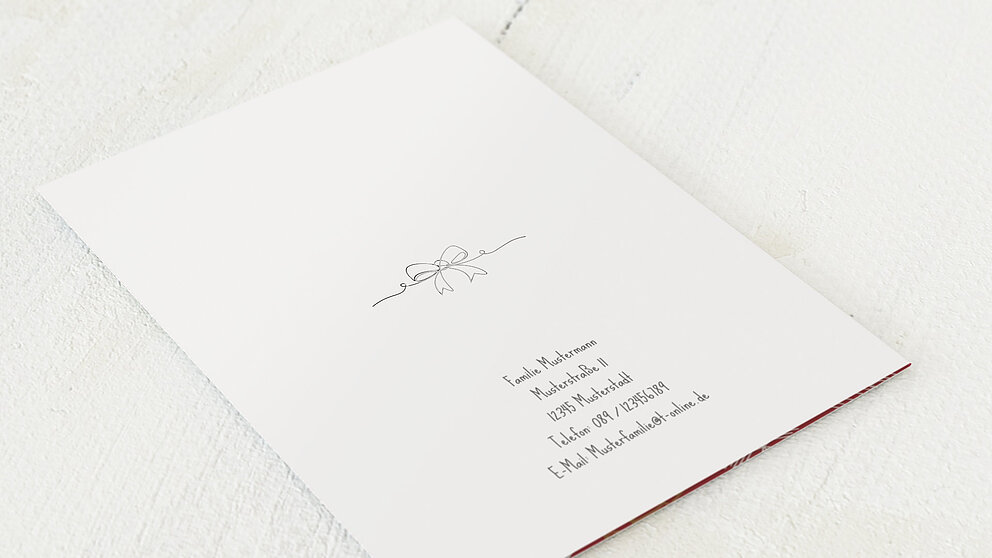 Familie Mustermann
Musterstraße 11
12345 Musterstadt
Telefon: 089 / 123456789
E-Mail: Musterfamilie@t-online.de